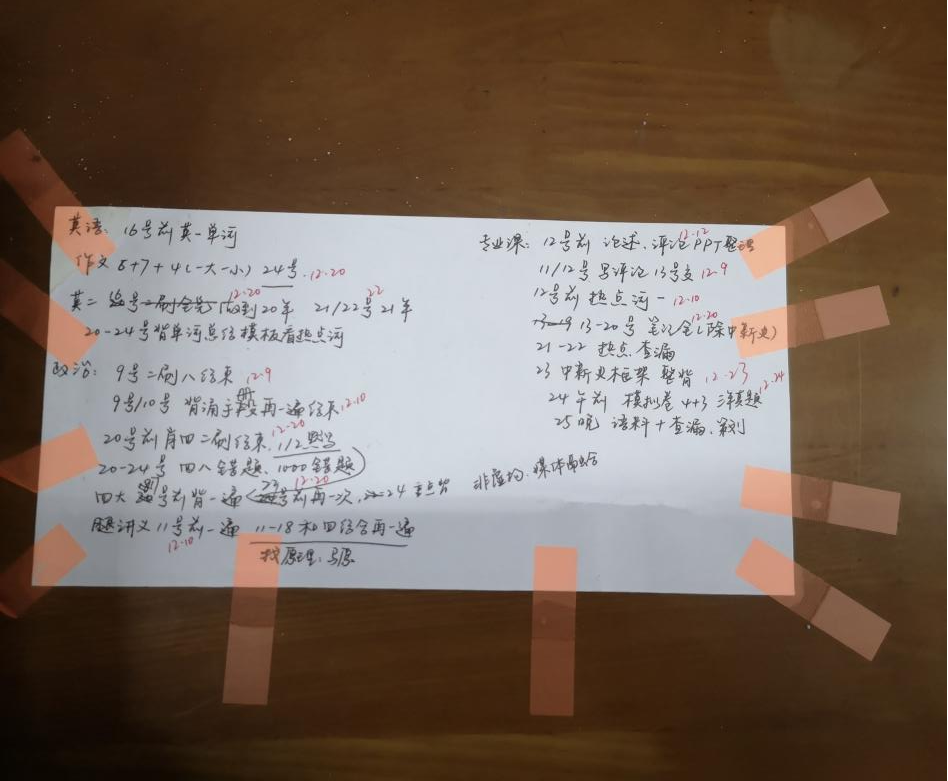 英语: 16号前英一单词
作文 8+7+4(一大一小) 24号. 12-20
英二 号二刷全完 做到20年 12-20 21/22号 22 21年
20-24号背单词总结模板看热点词
政治: 9号二刷八结束 12-9
9号/10号 背诵手册再一遍结束 12-10
20号前肖四二刷结束. 12-20
20-24号 四八错题. 1000错题
四大 号前背一遍 号前再一次. 12-20 24
讲义 11号前一遍 11-18 和四结合再一遍
12-10
找原理. 马原
专业课: 12号前 论述. 评论PPT整理 12-12
11/12号 写评论 13号交 12-9
12号前 热点词一 12-10
13-20号 笔记全(除中新史) 12-20
21-22 热点 查漏
23 中新史框架 整背 12-23
24 午前 模拟卷 4+3 三洋真题 12-24
25晚 语料+查漏. 策划
媒体融合